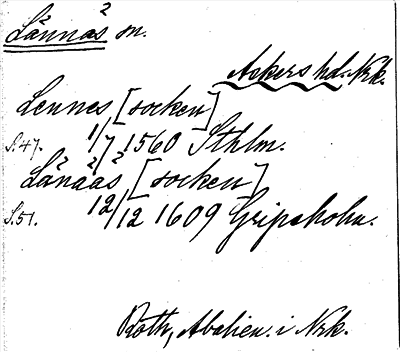 Lännäs sn.
Askers hd. Nrk.
Lennes [socken]
S. 47. 1/7 1560 Sthlm.
Länaås [socken]
S. 51. 12/12 1609 Gripsholm.
Roth, Abalien. i Nrk.